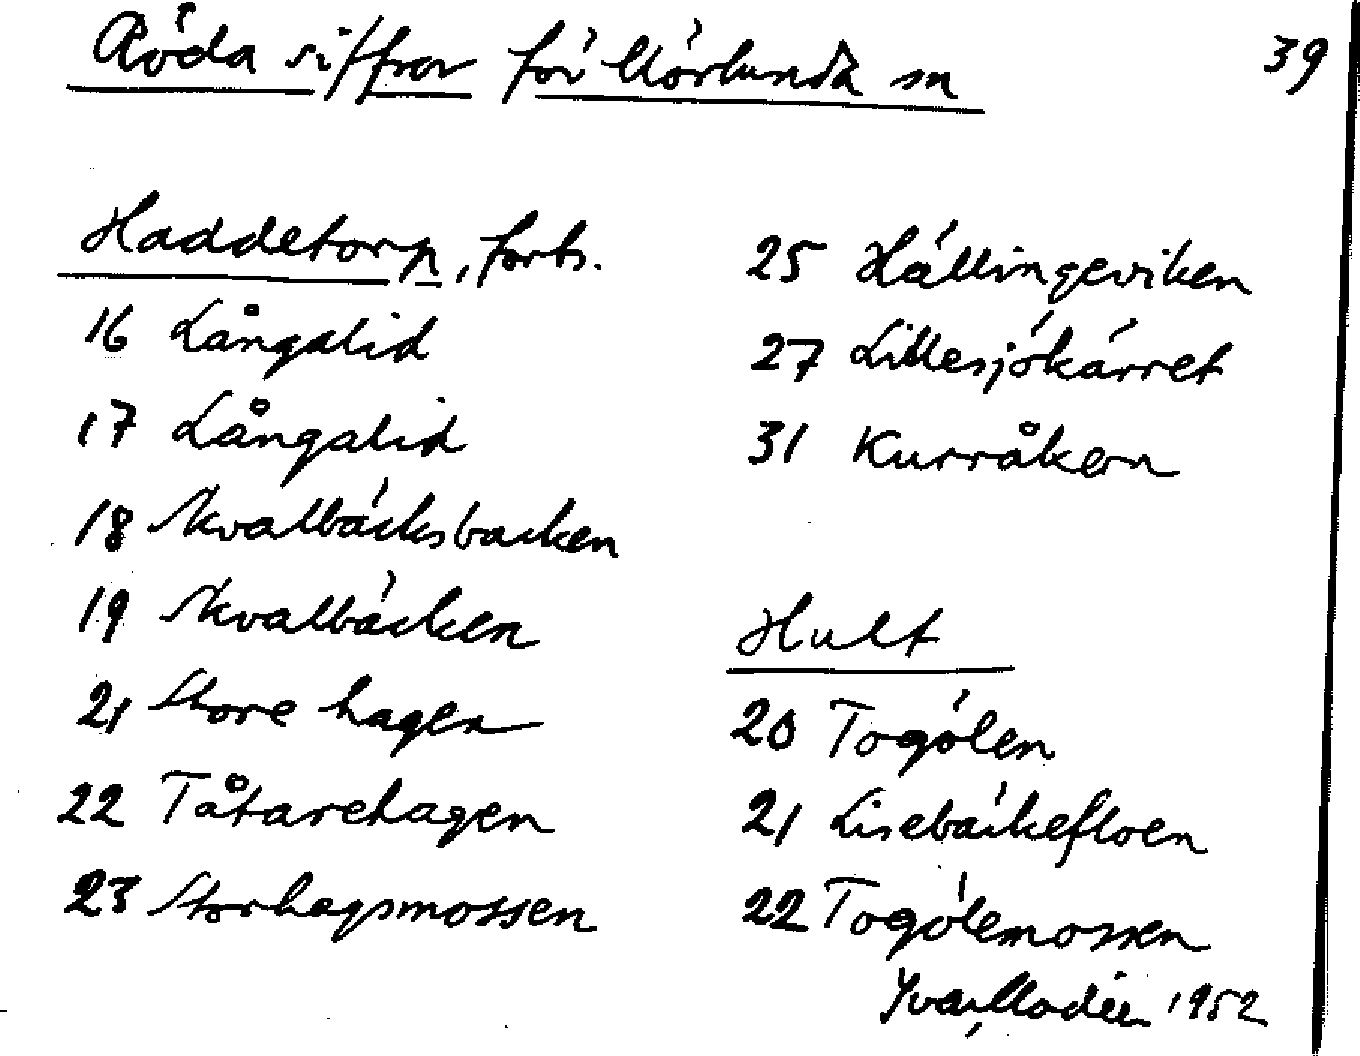 Röda siffror för Mörlunda sn
39
Haddetorp, forts.
16 Långalid
17 Långalid
18 Skvalbäcksbacken
19 Skvalbäcken
21 Store hagen
22 Tåtarehagen
23 Storhagsmossen
25 Hällingeviken
27 Lillesjökärret
31 Kurråkern
Hult
20 Togölen
21 Lisebäckefloen
22 Togölemossen
Yvar Modéer 1952